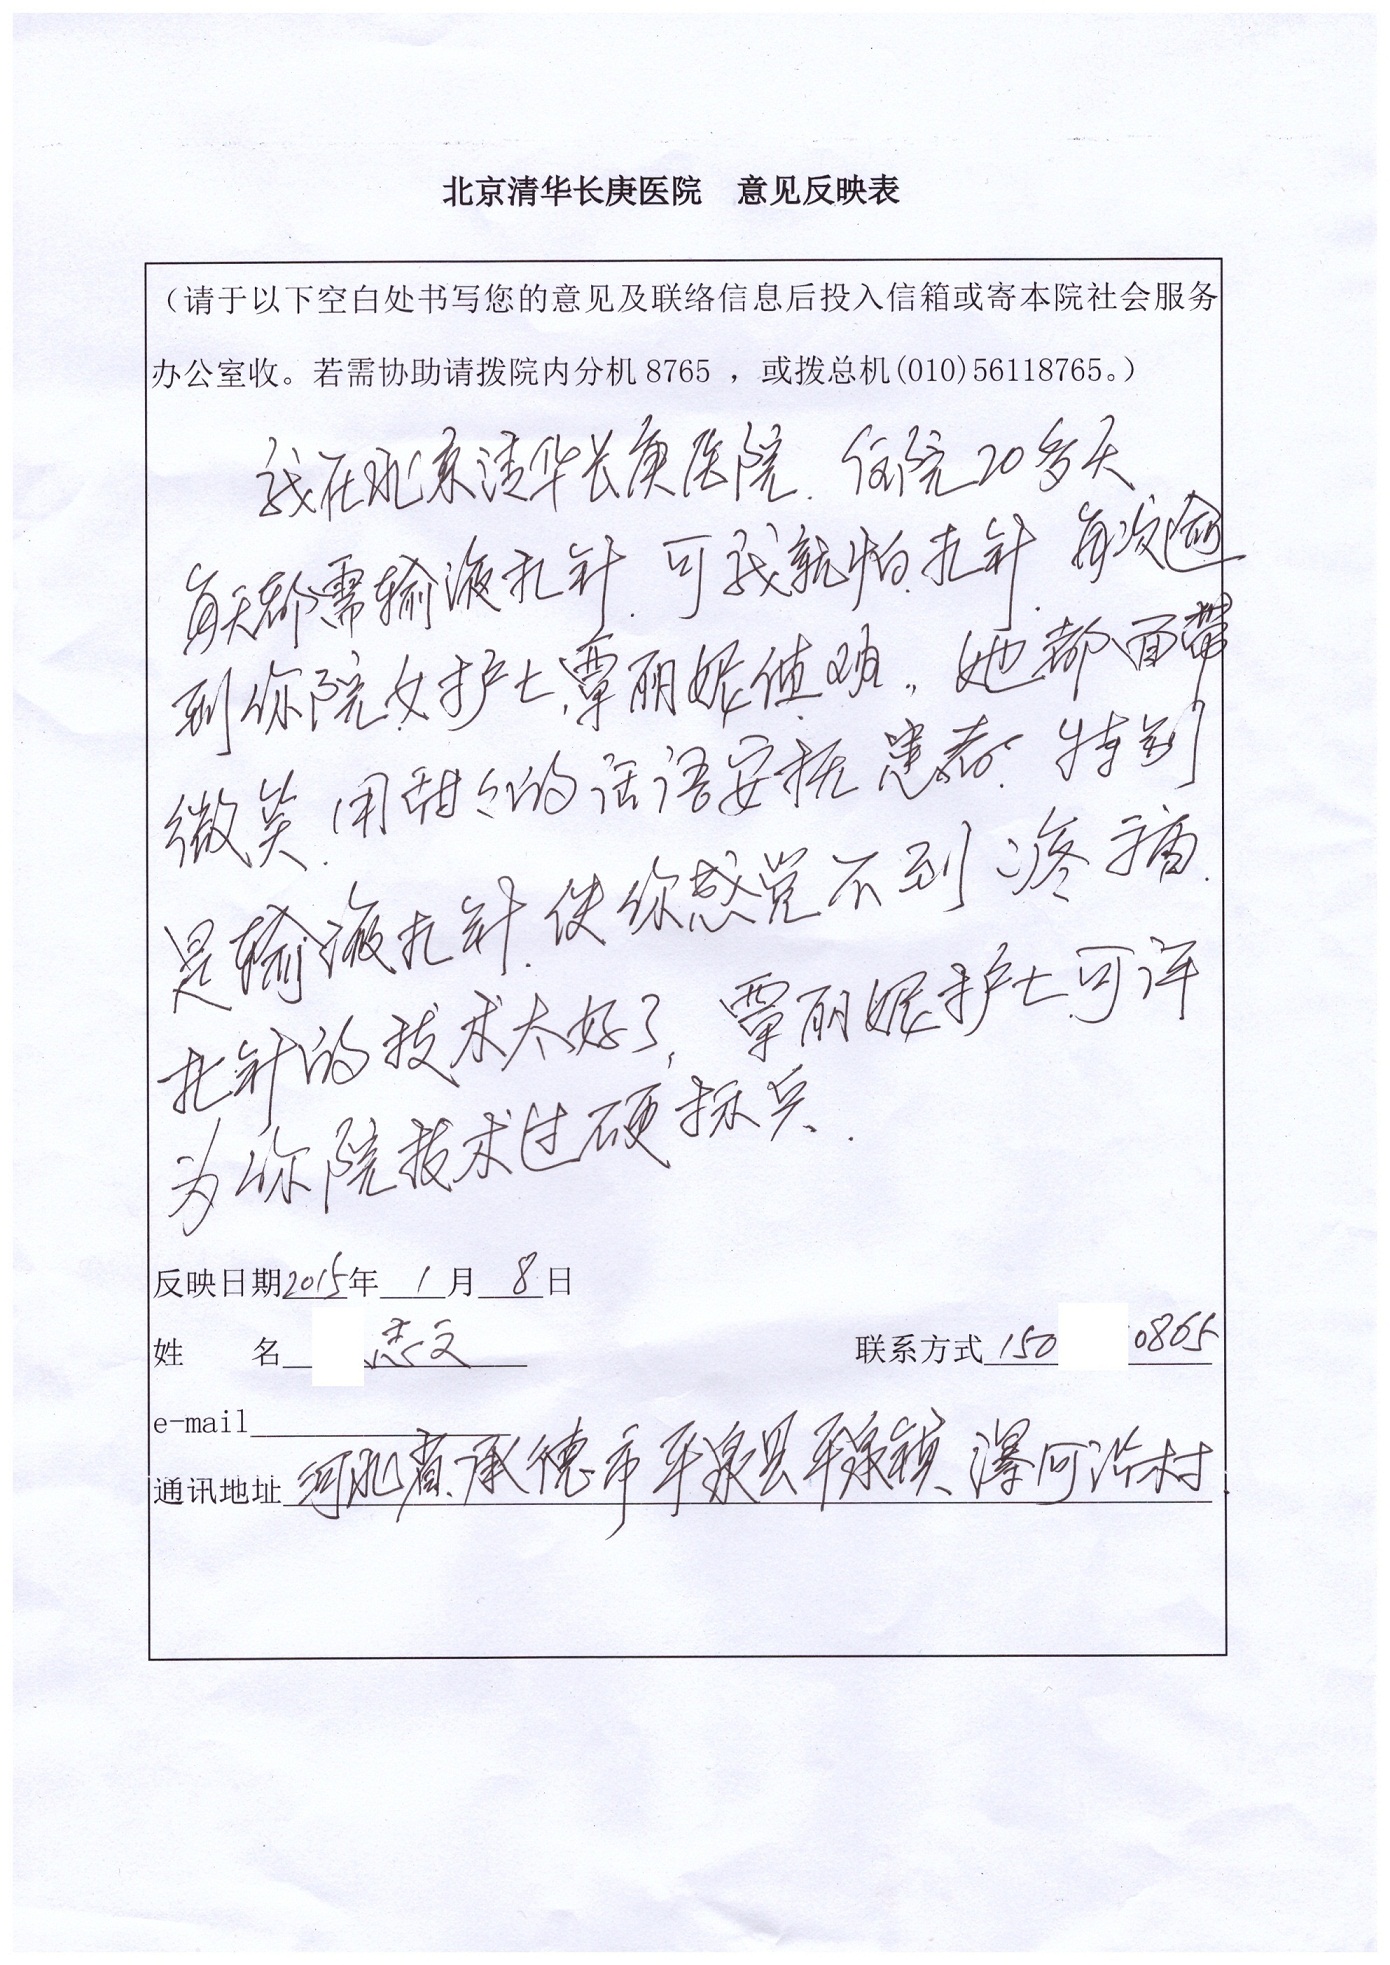 北京清华长庚医院 意见反映表
（请于以下空白处书写您的意见及联络信息后投入信箱或寄本院社会服务
办公室收。若需协助请拨院内分机8765 ，或拨总机(010)56118765。）
我在北京清华长庚医院. 住院20多天
每天都需输液扎针. 可我就怕扎针. 每次逾
到你院女护士覃丽妮值班。她都面带
微笑. 用甜々的话语安抚患者. 特别
是输液扎针. 使你感觉不到疼痛.
扎针的技术太好了, 覃丽妮护士可评
为你院技术过硬标兵.
反映日期2015年 1 月 8 日
姓 名 志文 联系方式 150 0865
e-mail
通讯地址 河北省承德市平泉县平泉镇 河沿村